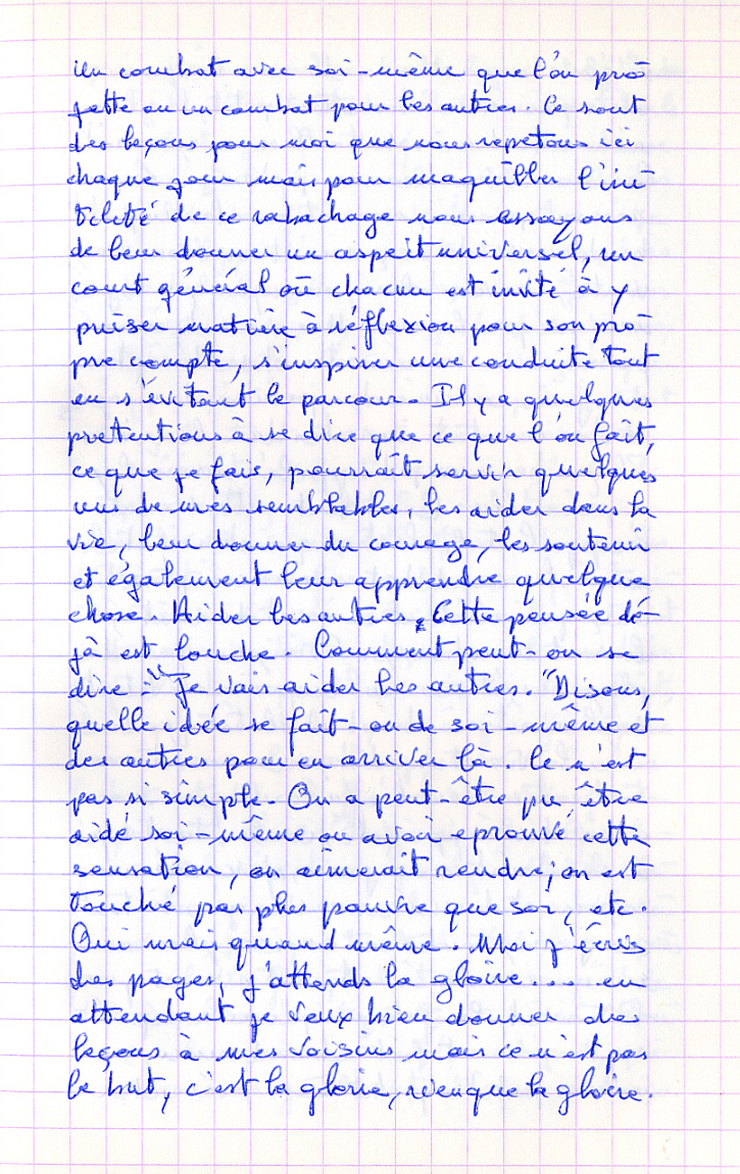 un combat avec soi-même que l'on pro
jette ou un combat pour les autres. Ce sont
des leçons pour moi que nous repetons ici
chaque jour mais pour maquiller l'inu
tilité de ce rabachage nous essayons
de leur donner un aspect universel, un
court général où chacun est invité à y
puiser matière à réflexion pour son pro
pre compte, s'inspirer une conduite tout
en s'évitant le parcour. Il y a quelques
pretentions à se dire que ce que l'on fait,
ce que je fais, pourrait servir quelques
uns de mes semblables, les aider dans la
vie, leur donner du courage, les soutenir
et également leur apprendre quelque
chose. Aider les autres. Cette pensée dé-
jà est louche. Comment peut-on se
dire : "Je vais aider les autres." Disons,
quelle idée se fait-on de soi-même et
des autres pour en arriver là. Ce n'est
pas si simple. On a peut-être pu être
aidé soi-même ou avoir eprouvé cette
sensation, on aimerait rendre; on est
touché par plus pauvre que soi, etc.
Oui mais quand même. Moi j'écris
des pages, j'attends la gloire... en
attendant je veux bien donner des
leçons à mes voisins mais ce n'est pas
le but, c'est la glorie, rien que la gloire.